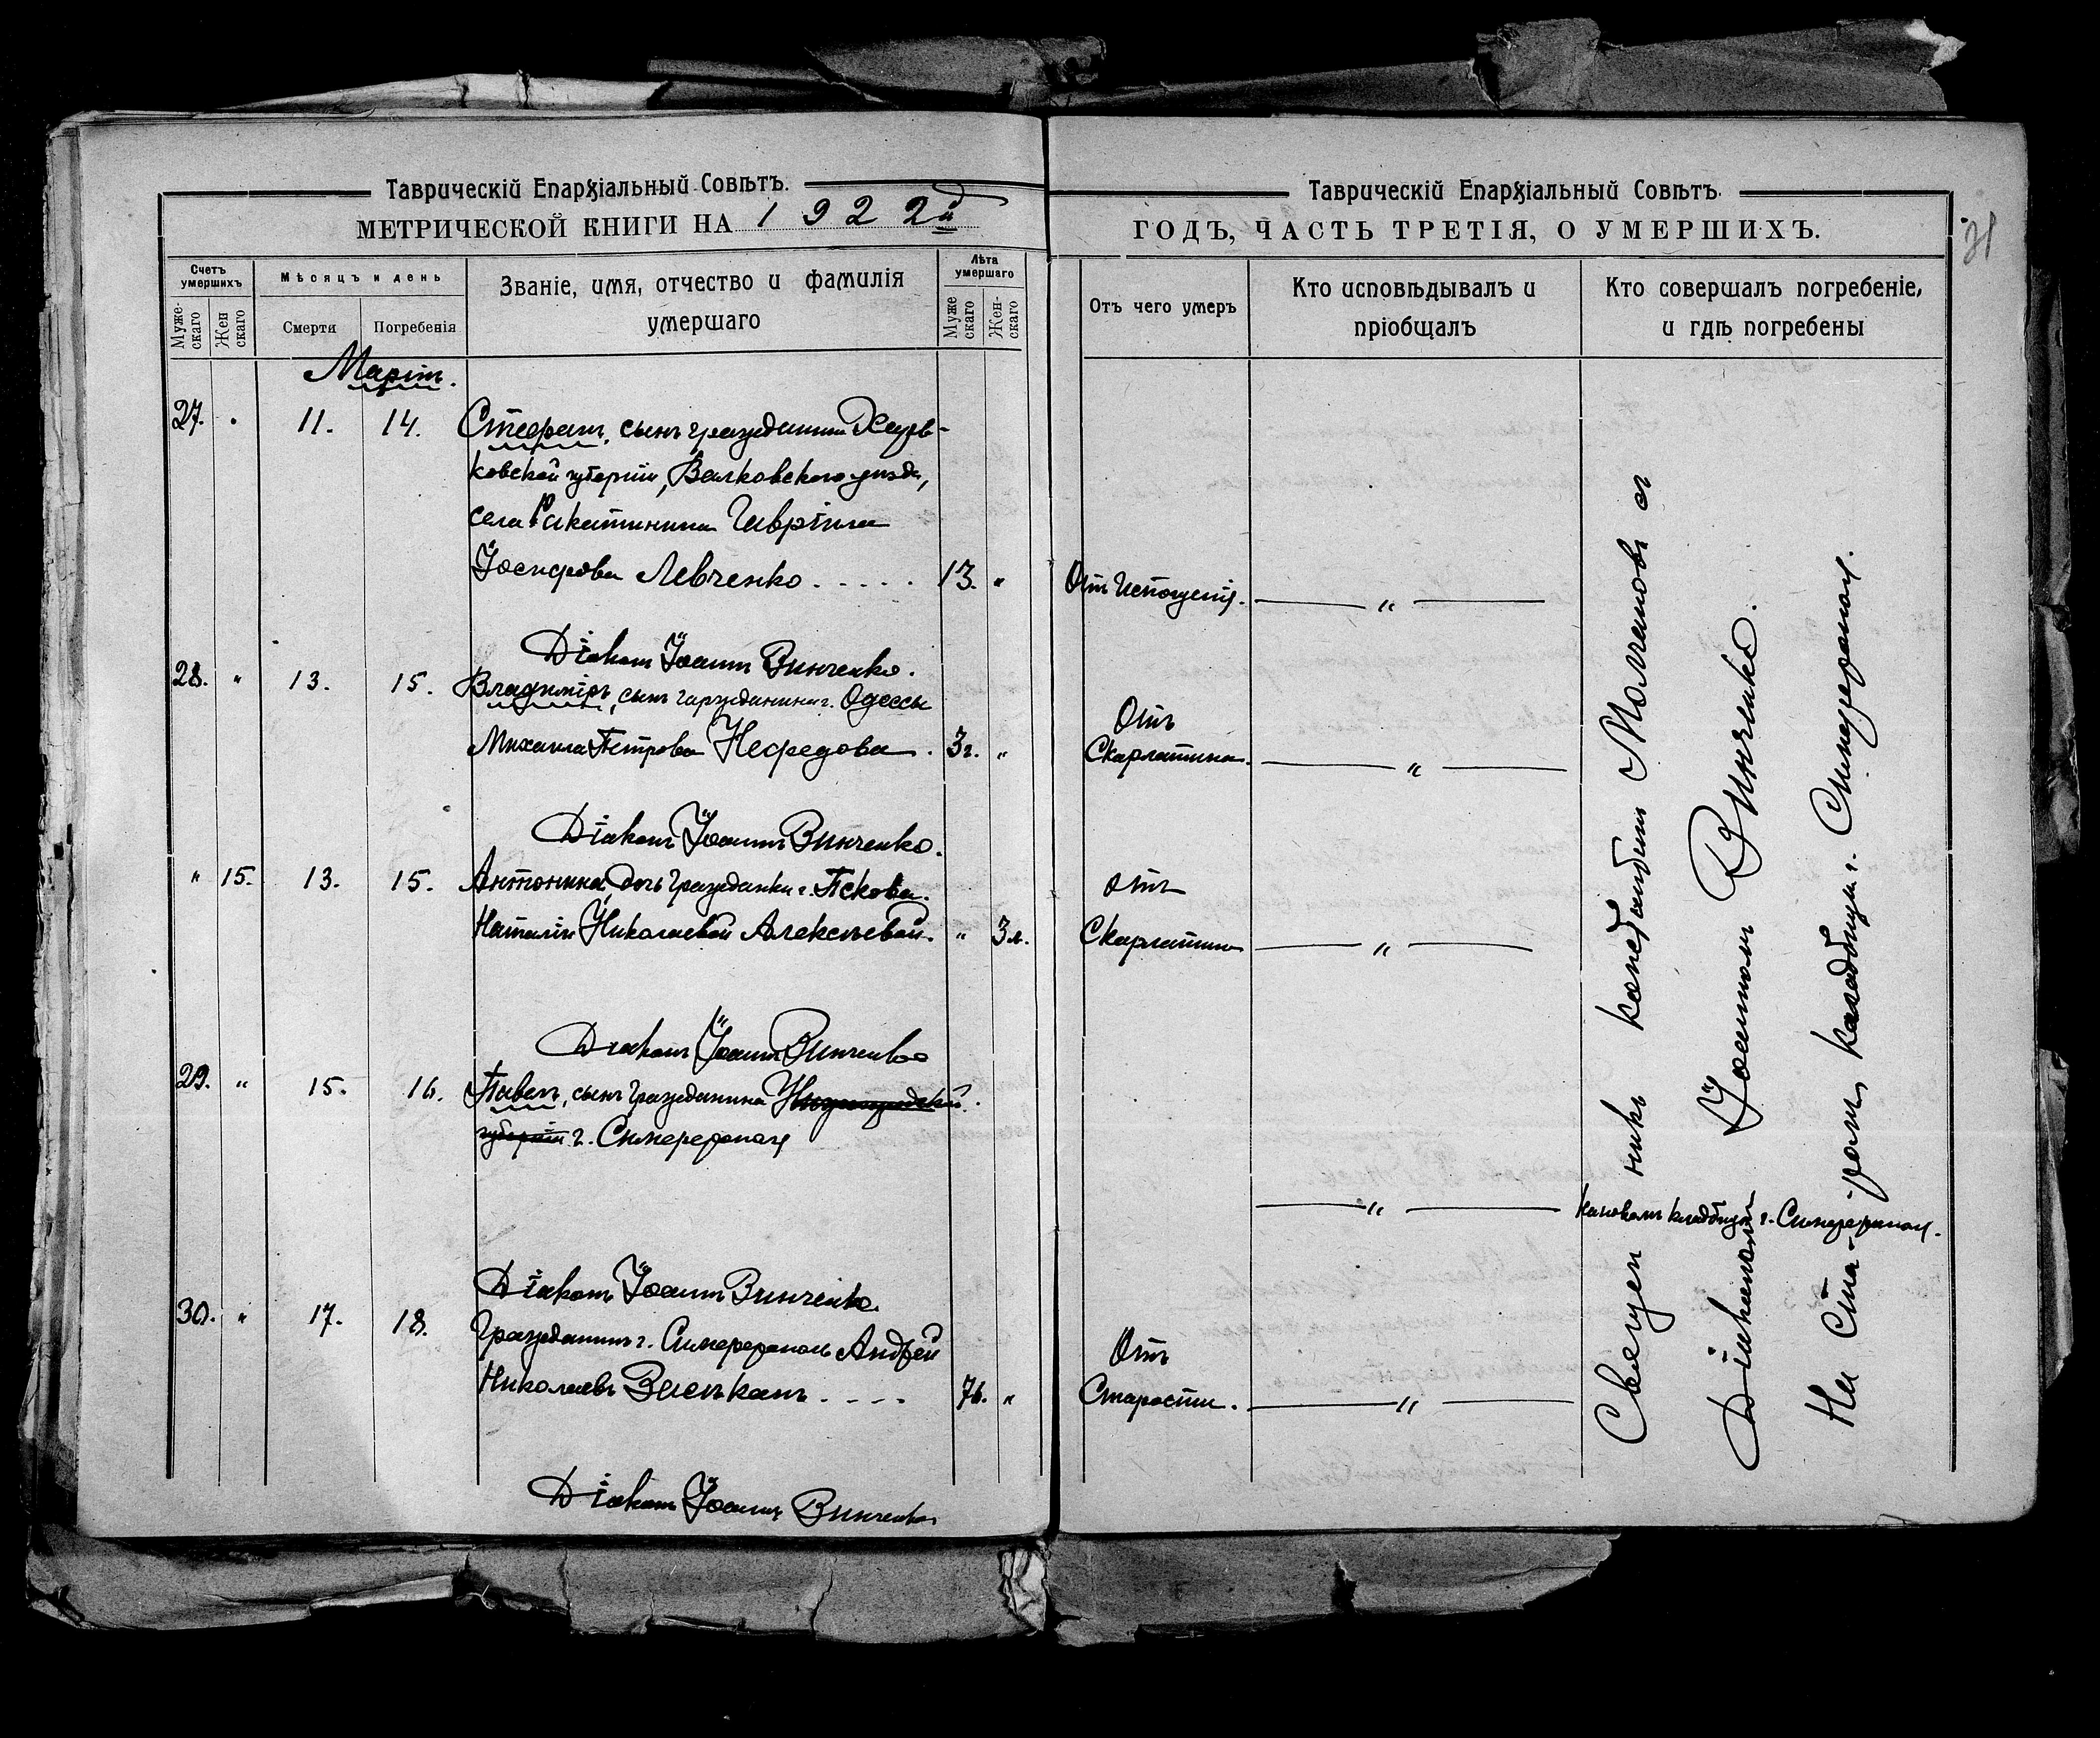 Таврическій Епархіальный Совѣтъ.
МЕТРИЧЕСКОЙ КНИГИ НА 1922й
Счетъ умершихъ
Мужескаго
Женскаго
Мѣсяцъ и день
Смерти
Погребенія
Званіе, имя, отчество и фамилія
умершаго
Лѣта умершаго
Мужескаго
Женскаго
Мартъ.
27. 11. 14. Стефанъ, сынъ гражданина Харь-
ковской губерніи, Валковскаго уѣзда,
села Ракитинина Гавріила
Іосифова Левченко . . . . . 13. "
Діаконъ Іоаннъ Винченко.
28. " 13. 15. Владиміръ, сынъ гаржданина г. Одессы
Михаила Петрова Нефедова . 3г. "
Діаконъ Іоаннъ Винченко.
" 15. 13. 15. Антонина, дочь гражданки г. Пскова
Наталіи Николаевой Алексѣевой. " 3л.
Діаконъ Іоаннъ Винченко
29. " 15. 16. Павелъ, сынъ гражданина
губерніи г. Симферополя
Діаконъ Іоаннъ Винченко.
30. " 17. 18. Гражданинъ г. Симферополь Андрей
Николаевъ . . . . 76. "
Діаконъ Іоаннъ Винченко
Таврическій Епархіальный Совѣтъ.
ГОДЪ, ЧАСТЬ ТРЕТІЯ, О УМЕРШИХЪ.
31
Отъ чего умеръ
Кто исповѣдывалъ и
пріобщалъ
Кто совершалъ погребеніе,
и гдѣ погребены
Отъ Истощенія. "
Отъ
Скарлатина. "
Отъ
Скарлатины "
" На новомъ кладбищѣ г. Симферополя.
Отъ
Старости. "
Священникъ Константинъ съ
Діакономъ Іоанномъ Винченко.
На Старомъ кладбищѣ г. Симферополя.